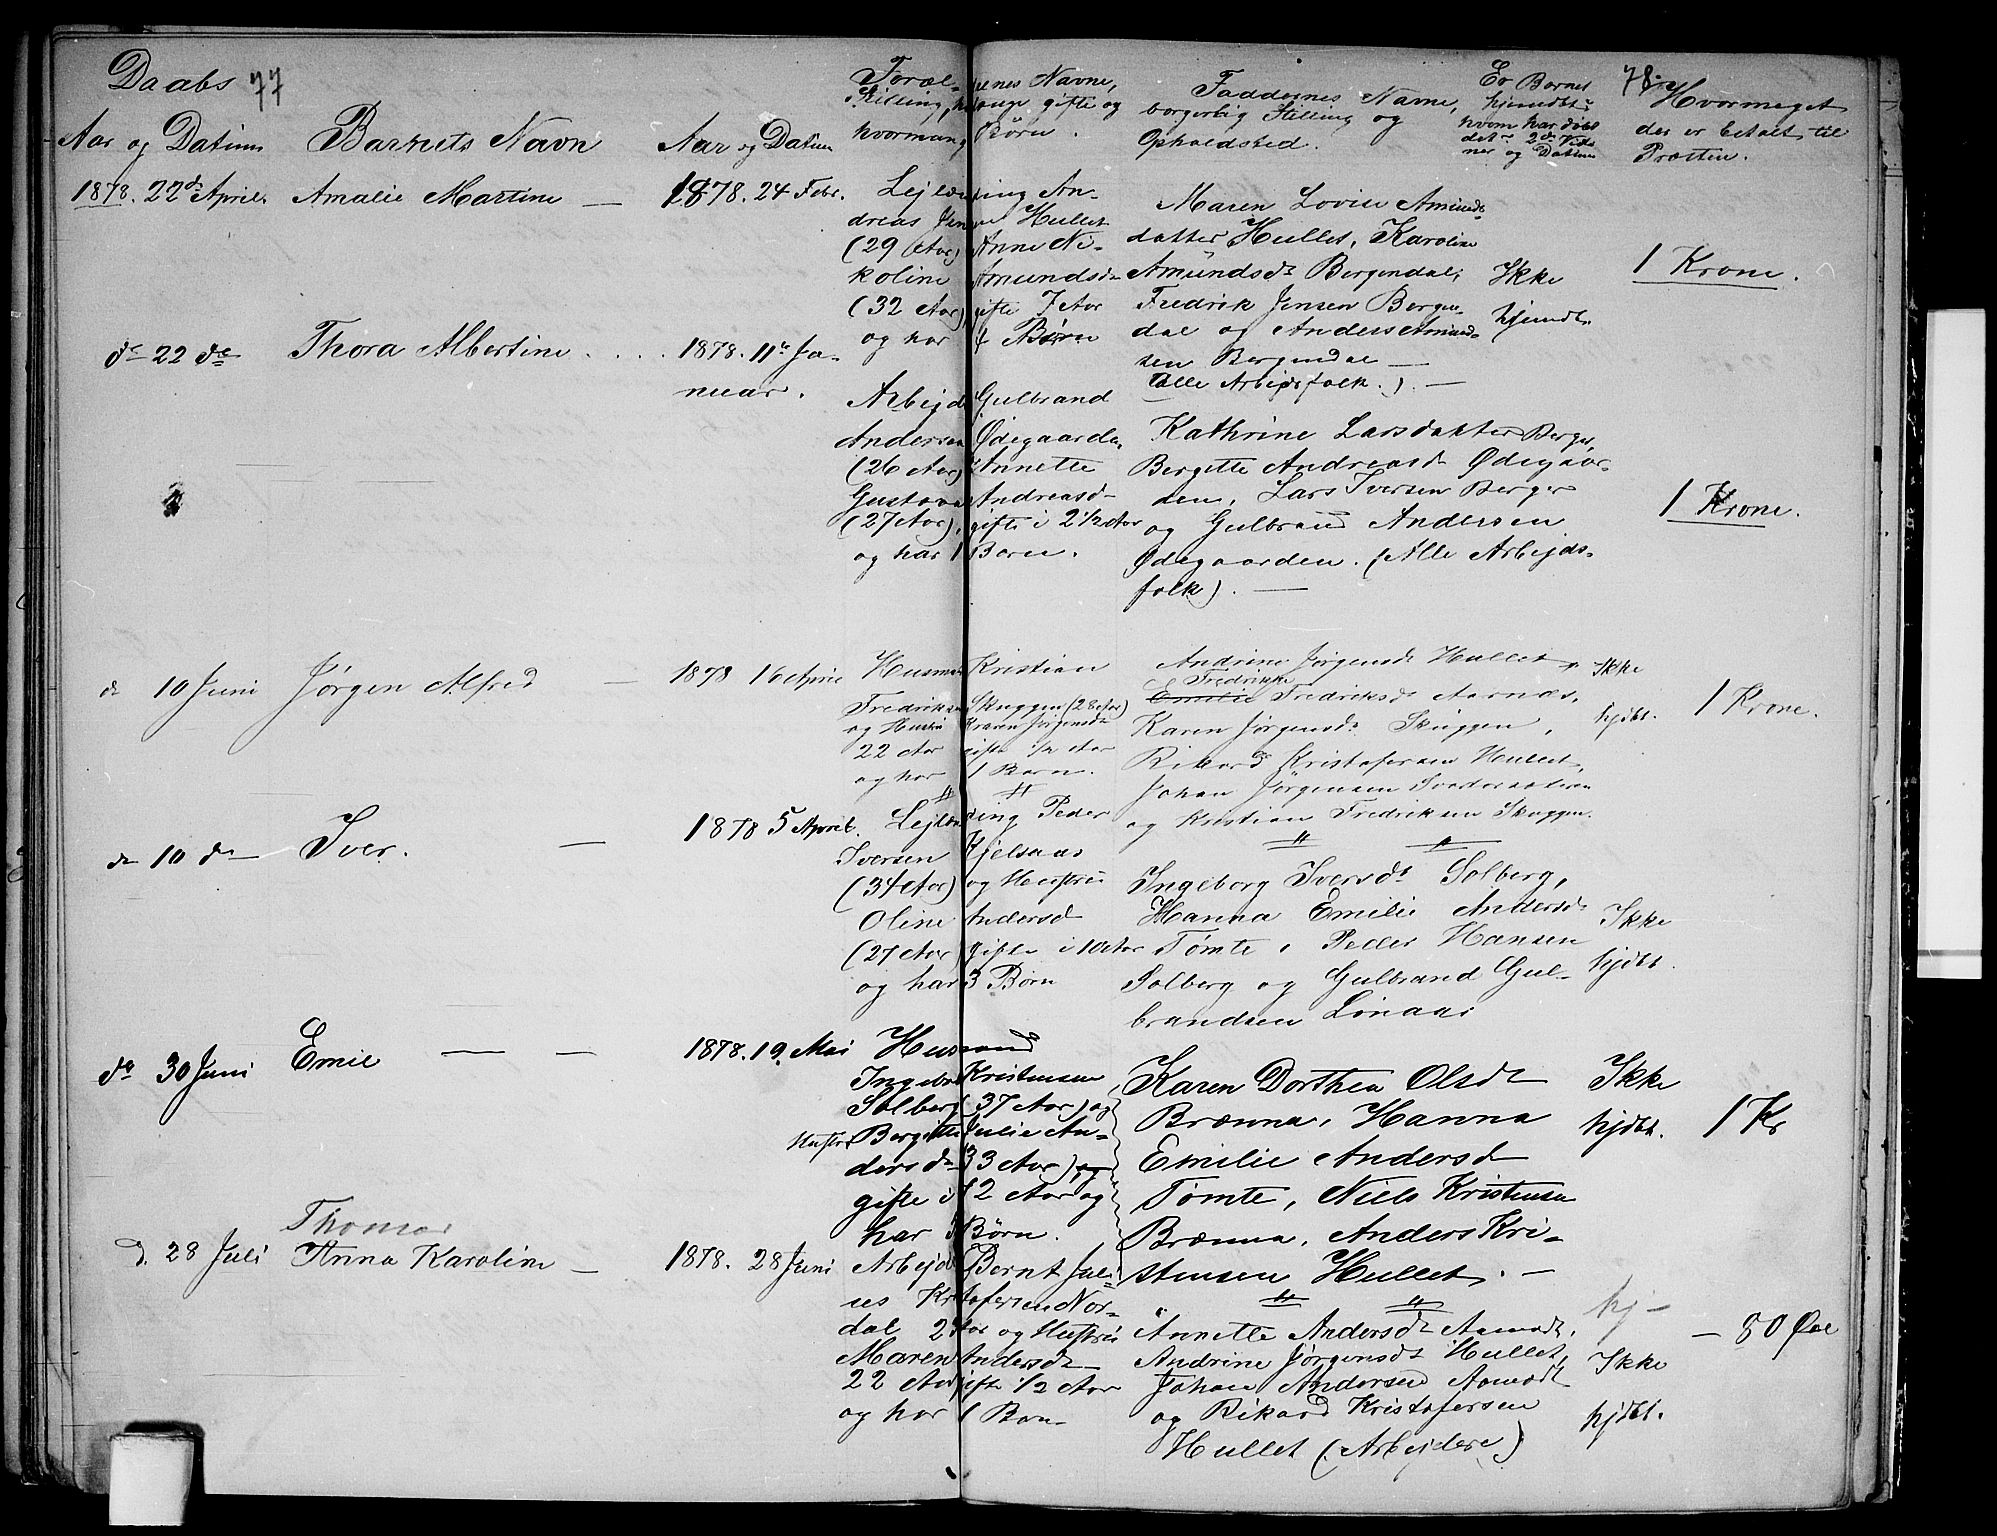 Daabs 77
Aar og Datum
Barnets Navn
Aar og Datum
Foræl-drenes Navne,
Stilling, gifte og
hvormange Børn.
Faddernes Navne,
borgerlig Stilling og
Opholdssted.
Er Barnet
hjemdøbt
hvem har døbt
det 2de Vid-
ner og Datum
78.
Hvormeget
der er betalt til
Præsten.
1878. 22de April. Amalie Martine — 1878. 24 Febr.
Lejlænding An-
dreas Jensen Hullet
(29 Aar) Anne Ni-
koline Amundsdt
(32 Aar) gifte 7 Aar
og har 4 Børn
Maren Lovise Amunds-
datter Hullet, Karoline
Amundsdt Bergendal,
Fredrik Jensen Bergen-
dal og Anders Amund-
sen Bergendal —
(alle Arbejdsfolk.). —
Ikke
hjemdt.
1 Krone.
do 22 do Thora Albertine . . . . 1878. 11te Ja-
nuar.
Arbejd Gulbrand
Andersen Ødegaarden
(26 Aar) Annette
Gustava Andreasd-
(27 Aar), gifte i 2 1/2 Aar
og har 1 Barn.
Kathrine Larsdatter Berger,
Bergette Andreasdt Ødegaar-
den, Lars Iversen Berger
og Gulbrand Andersen
Ødegaarden. (Alle Arbejds-
folk). —
1 Krone.
d 10 Juni Jørgen Alfred — 1878 16 April
Husmand Kristian
Fredriksen Skuggen (28 Aar)
og Hustru Karen Jørgensdt
22 Aar gifte 1/2 Aar
og har 1 Barn.
Andrine Jørgensdt Hullet,
Fredrikke
Emilie Fredriksdt Aarnæs,
Karen Jørgensdt Skuggen,
Rikard Kristofersen Hullet,
Johan Jørgensen
og Kristian Fredriksen Skuggen.
Ikke
hjdbt.
1 Krone.
d 10 do Iver. — 1878 5 April.
Lejlænding Peder
Iversen Kjelsaas
(34 Aar) og Hustru
Oline Andersd
(27 Aar) gifte i 10 Aar
og har 3 Børn
Ingeborg Iversdt Solberg,
Hanna Emilie Andersdt
Tømte, Peder Hansen
Solberg og Gulbrand Gul-
brandsen Lønaas
Ikke
hjdbt.
do 30 Juni Emil — — 1878. 19. Mai
Husmand
Ingebr Kristensen
Solberg (37 Aar) og
Hustru Bergette Julie An-
dersdt 33 Aar) og
gifte i 12 Aar og
har Børn.
Karen Dorthea Olsdt
Brænna, Hanna
Emilie Andersdt
Tømte, Niels Kristensen
Brænna, Anders Kri-
stensen Hullet. —
Ikke
hjdbt.
1 Kr
Thomas
d. 28 Juli Anna Karoline — 1878. 28 Juni
Arbejd Bernt Juli-
us Kristofersen Nor-
dal 2 Aar og Hustru
Maren Andersdt
22 Aar gifte 1/2 Aar
og har 1 Barn
Annette Andersdt Aamodt,
Andrine Jørgensdt Hullet,
Johan Andersen Aamodt
og Rikard Kristofersen
Hullet (Arbejdere)
hj —
Ikke
hjdbt.
— 80 Øre